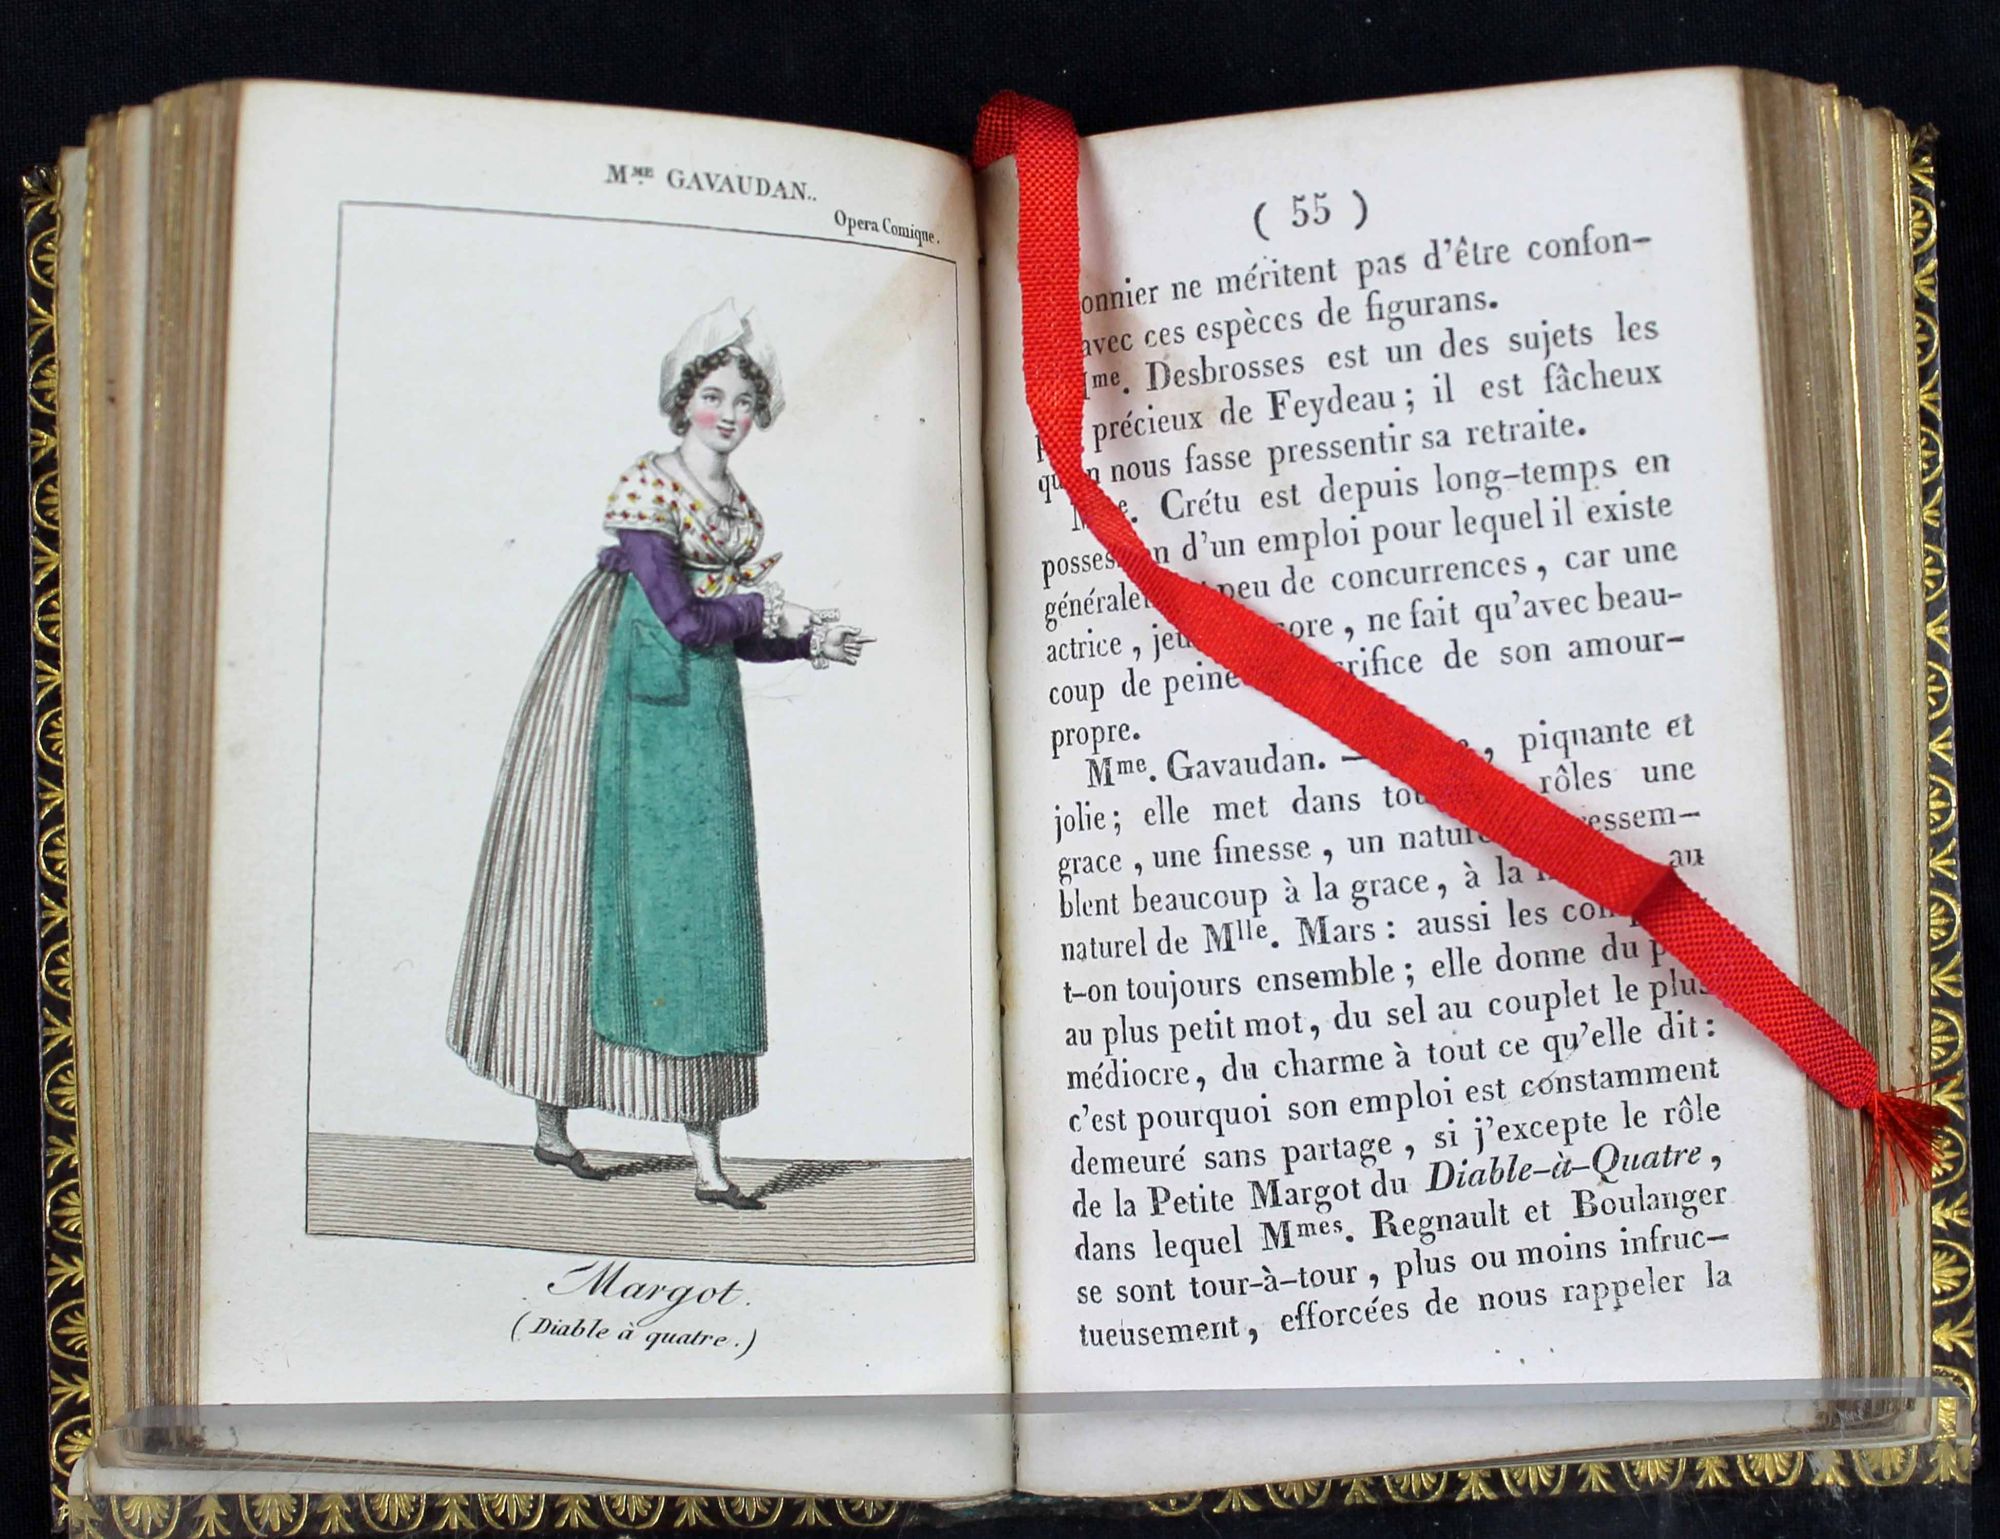 MME GAVAUDAN..
Opera Comique.
Margot.
(Diable à quatre.)
( 55 )
onnier ne méritent pas d'être confon-
avec ces espèces de figurans.
me. Desbrosses est un des sujets les
précieux de Feydeau ; il est fâcheux
nous fasse pressentir sa retraite.
Crétu est depuis long-temps en
d'un emploi pour lequel il existe
peu de concurrences, car une
actrice, ne fait qu'avec beau-
coup de peine de son amour-
propre.
Mme. Gavaudan. — piquante et
jolie ; elle met dans rôles une
grace, une finesse, un ressem-
blent beaucoup à la grace, à la au
naturel de Mlle. Mars : aussi les
t-on toujours ensemble ; elle donne du
au plus petit mot, du sel au couplet le plus
médiocre, du charme à tout ce qu'elle dit :
c'est pourquoi son emploi est constamment
demeuré sans partage, si j'excepte le rôle
de la Petite Margot du Diable-à-Quatre,
dans lequel Mmes. Regnault et Boulanger
se sont tour-à-tour, plus ou moins infruc-
tueusement, efforcées de nous rappeler la